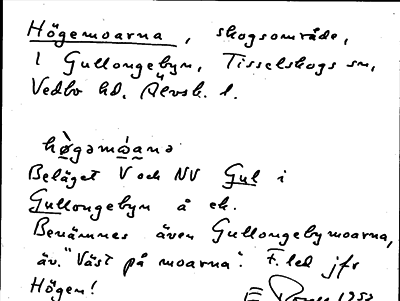 Högemoarna, skogsområde,
I Gullongebyn, Tisselskogs sn,
Vedbo hd. Älvsb. l.
hø̀gəmóana
Beläget V och NV Gul i
Gullongebyn å ek.
Benämnes även Gullongebymoarna,
äv. "Väst på moarna". F.led jfr
Högen!
1952